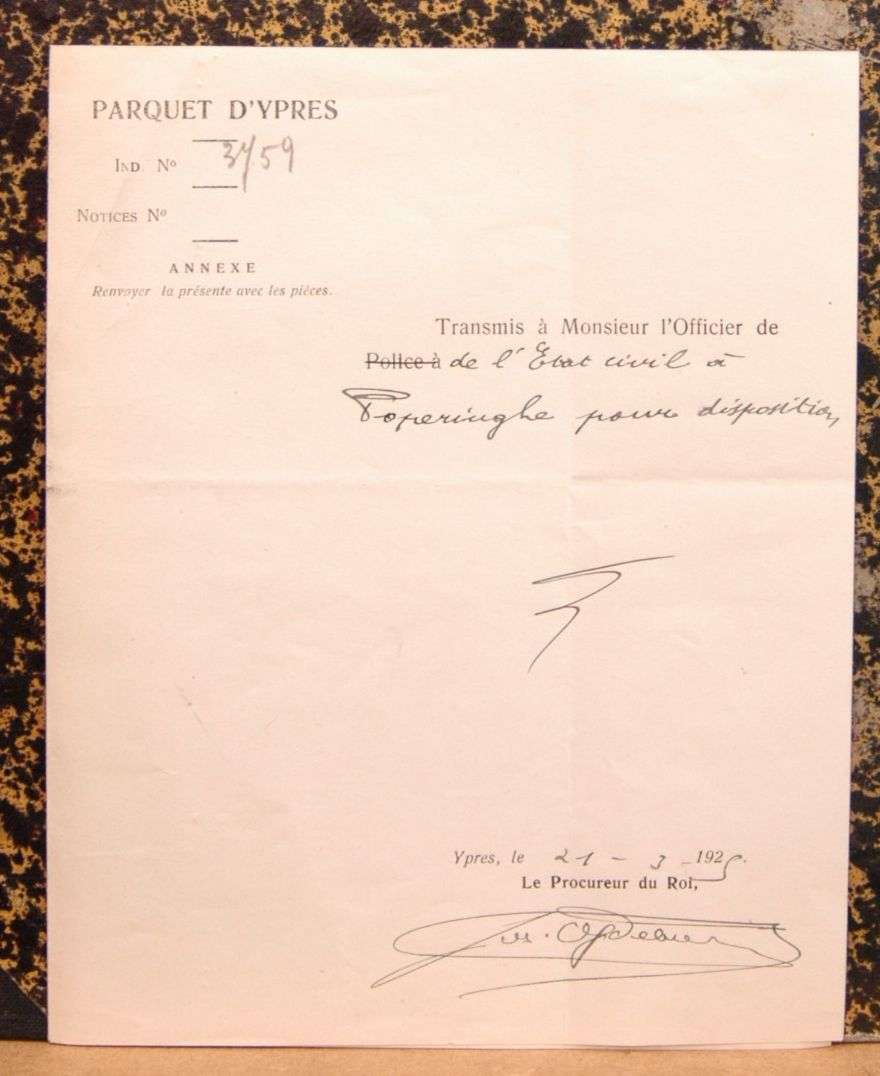 PARQUET D'YPRES
IND. Nº 3759
NOTICES Nº
ANNEXE
Renvoyer la présente avec les pièces.
Transmis à Monsieur l'Officier de
Police à de l'Etat civil à
Poperinghe pour disposition
Ypres, le 21 - 3 - 1925.
Le Procureur du Roi,